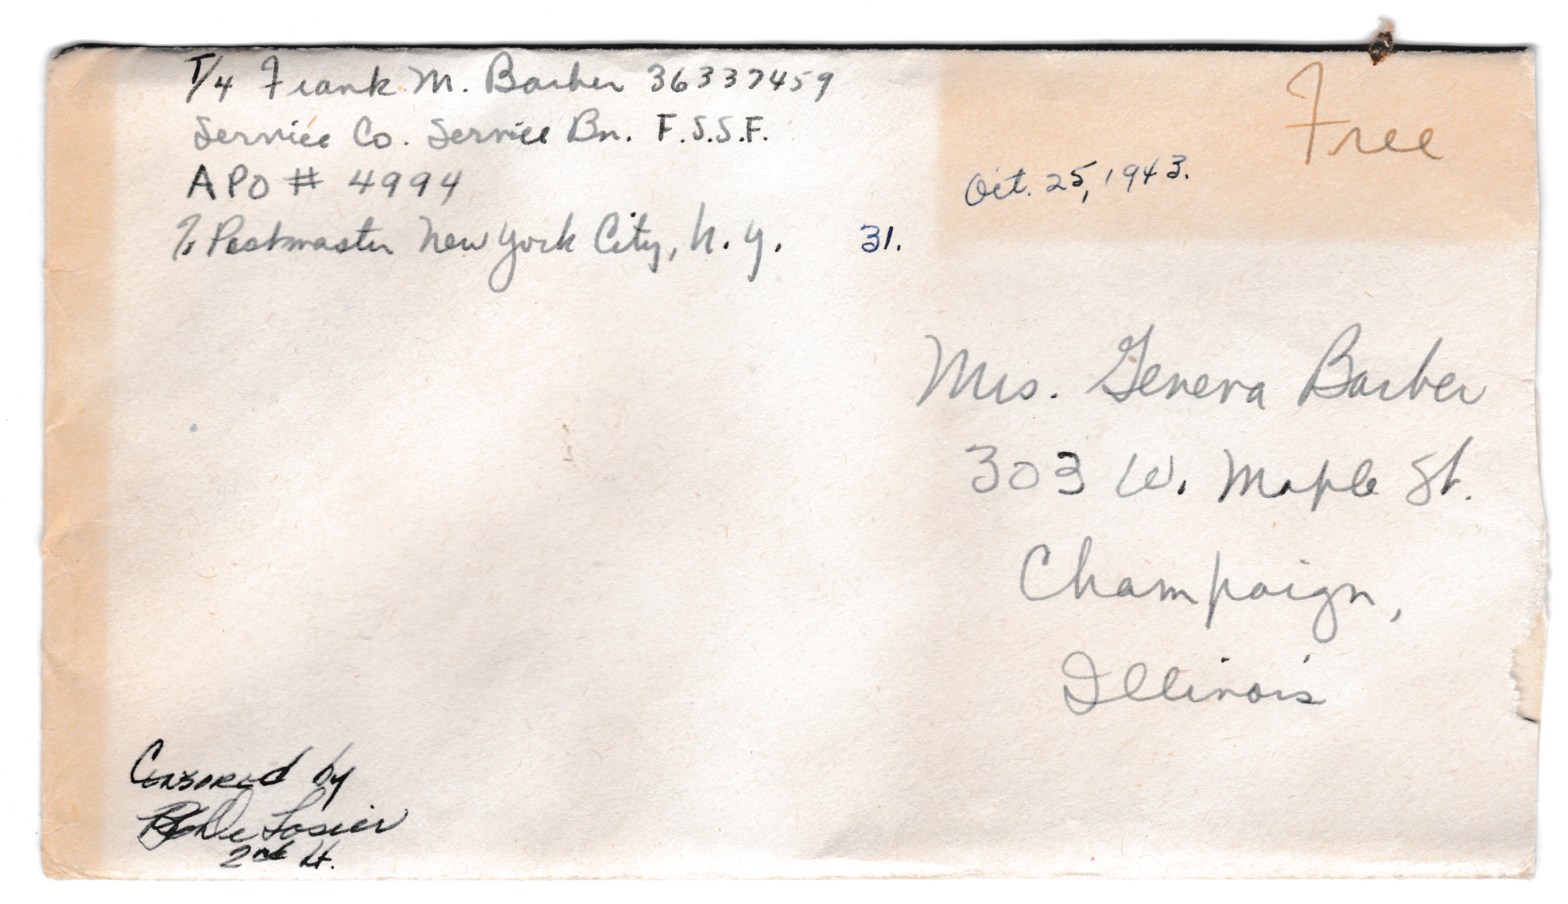 T/4 Frank M. Barber 36337459
Service Co. Service Bn. F.S.S.F.
APO # 4994
℅ Postmaster New York City, N.Y.
31.
Oct. 25, 1943.
Free
Mrs. Geneva Barber
303 W. Maple St.
Champaign,
Illinois
Censored by
De Losier
2nd Lt.